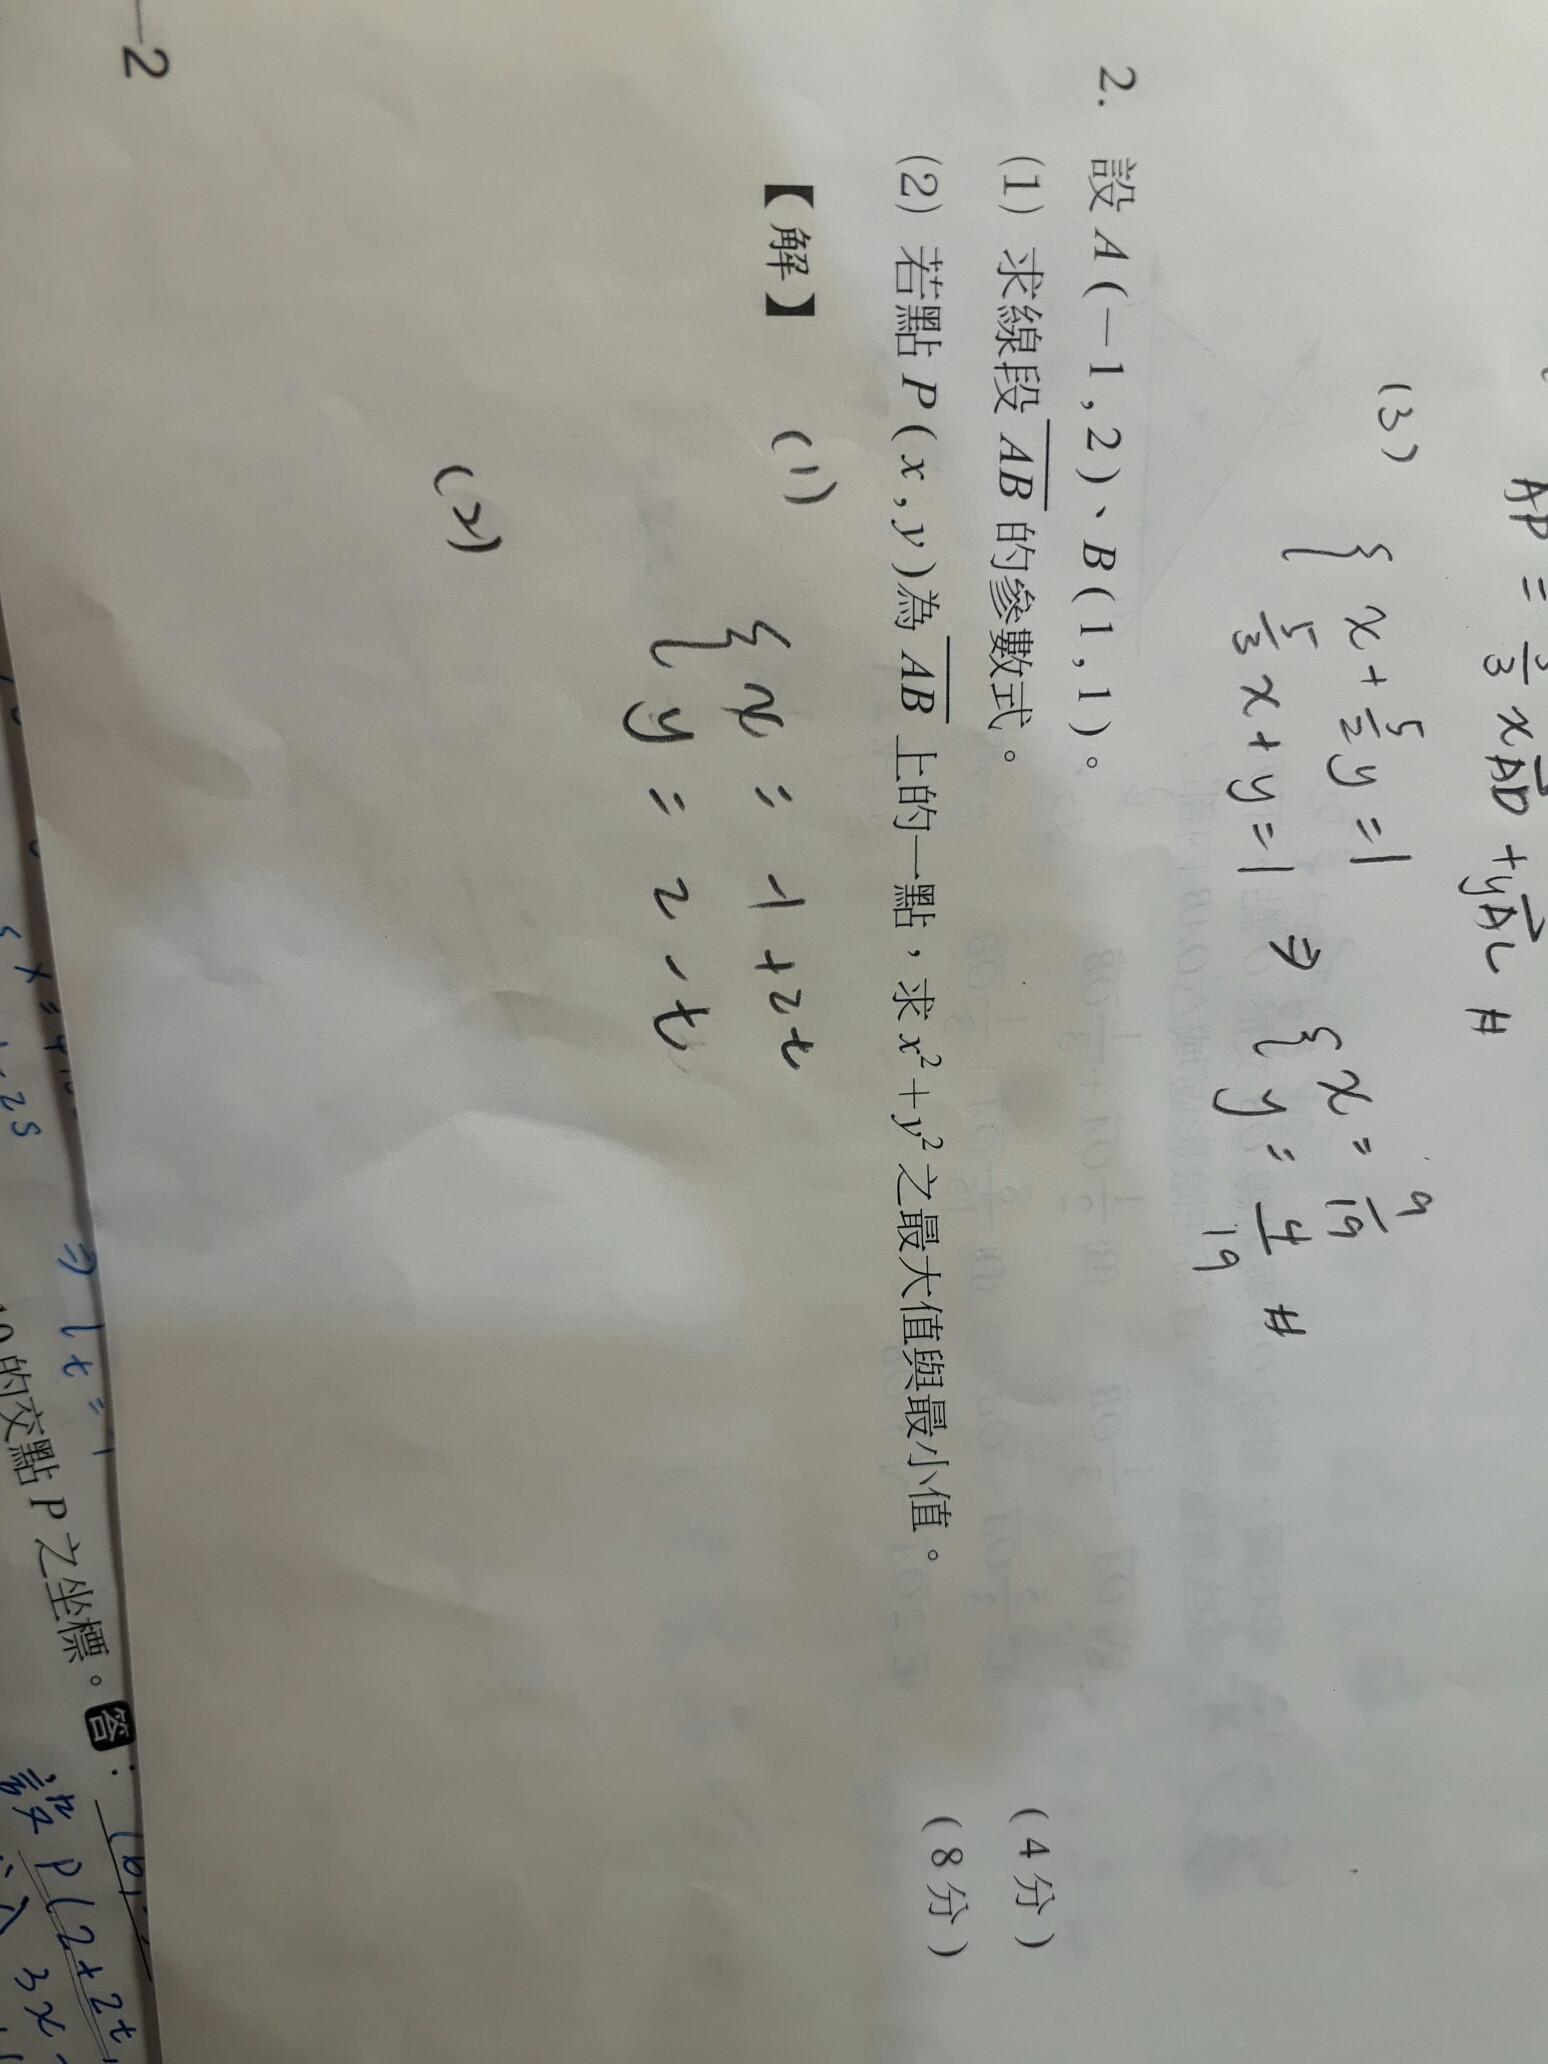 AP = x AD + y AC #
(3) { x + 5/2 y = 1
5/3 x + y = 1 ⇒ { x = 9/19
y = 4/19 #
2. 設 A(−1,2)、B(1,1)。
(1) 求線段 AB 的參數式。 (4分)
(2) 若點 P(x,y)為 AB 上的一點,求 x²+y² 之最大值與最小值。 (8分)
【解】 (1) { x = -1 + 2t
y = 2 - t
(2)
-2
⇒ t = 1
的交點 P 之坐標。答:
設 P(2+2t,
3x